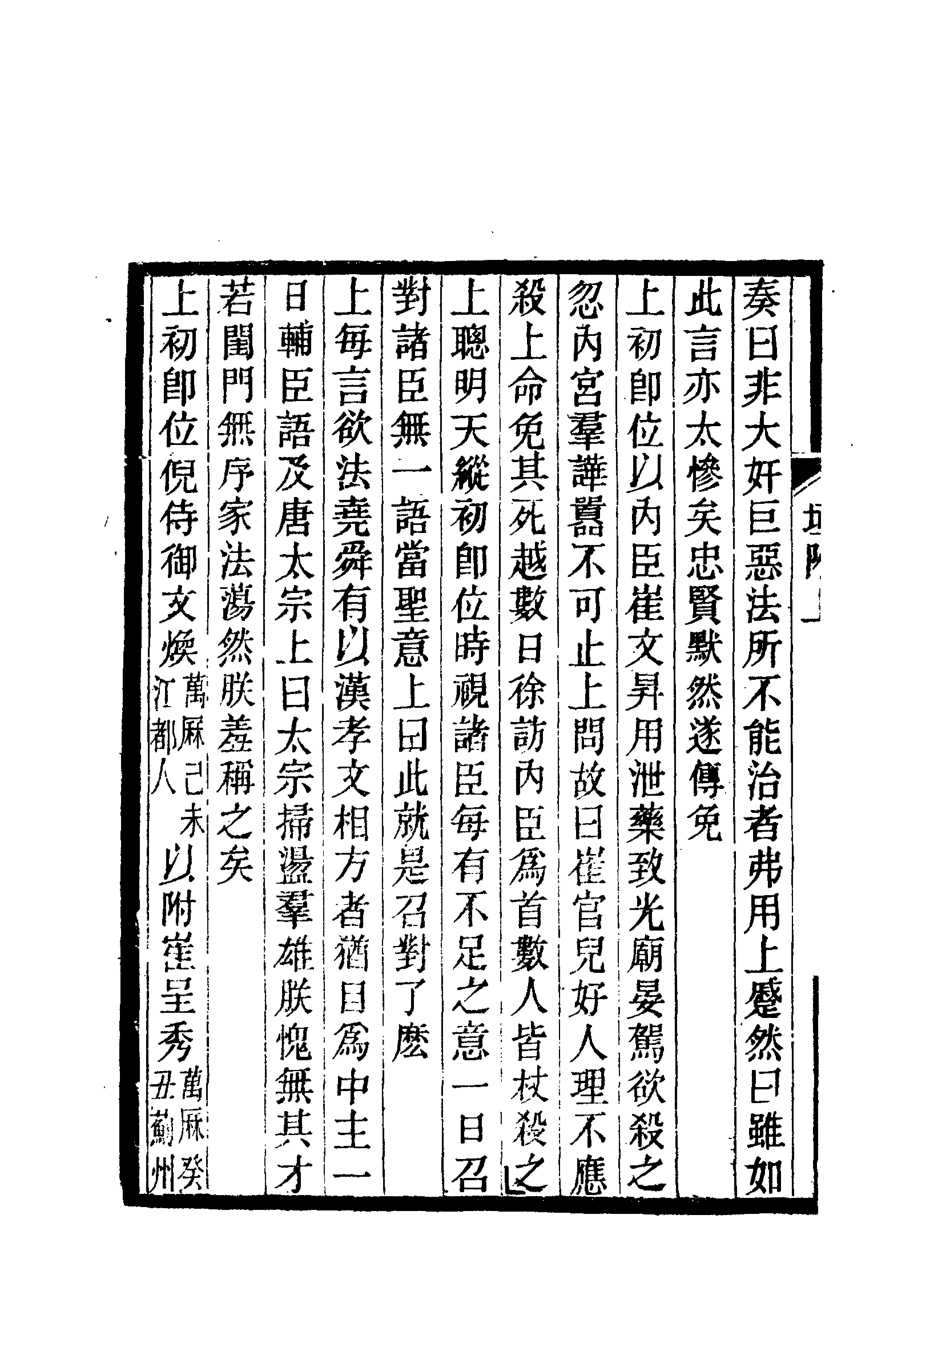 奏曰非大奸巨惡法所不能治者弗用上蹙然曰雖如
此言亦太慘矣忠賢默然遂傳免
上初卽位以內臣崔文昇用泄藥致光廟晏駕欲殺之
忽內宮羣譁囂不可止上問故曰崔官兒好人理不應
殺上命免其死越數日徐訪內臣爲首數人皆杖殺之
上聰明天縱初卽位時視諸臣每有不足之意一日召
對諸臣無一語當聖意上曰此就是召對了麽
上每言欲法堯舜有以漢孝文相方者猶目爲中主一
日輔臣語及唐太宗上曰太宗掃盪羣雄朕愧無其才
若閨門無序家法蕩然朕羞稱之矣
上初卽位倪侍御文煥萬厤己未江都人以附崔呈秀萬厤癸丑薊州